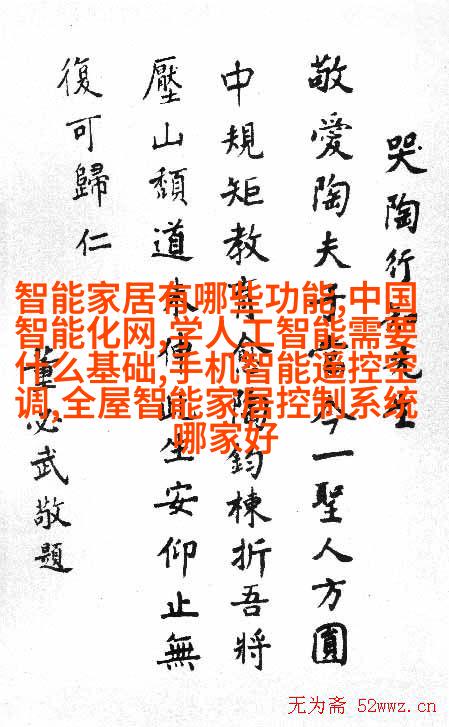 哭陶行知先生
敬愛陶夫子當今一聖人方圓
中規矩教育陶鈞棟折吾將
壓山頹道未傳此生安仰止無
復可歸仁
董必武敬題
智能家居有哪些功能,中国
智能化网,学人工智能需要
什么基础,手机智能遥控空
调,全屋智能家居控制系统
哪家好
无为斋 52wwz.cn